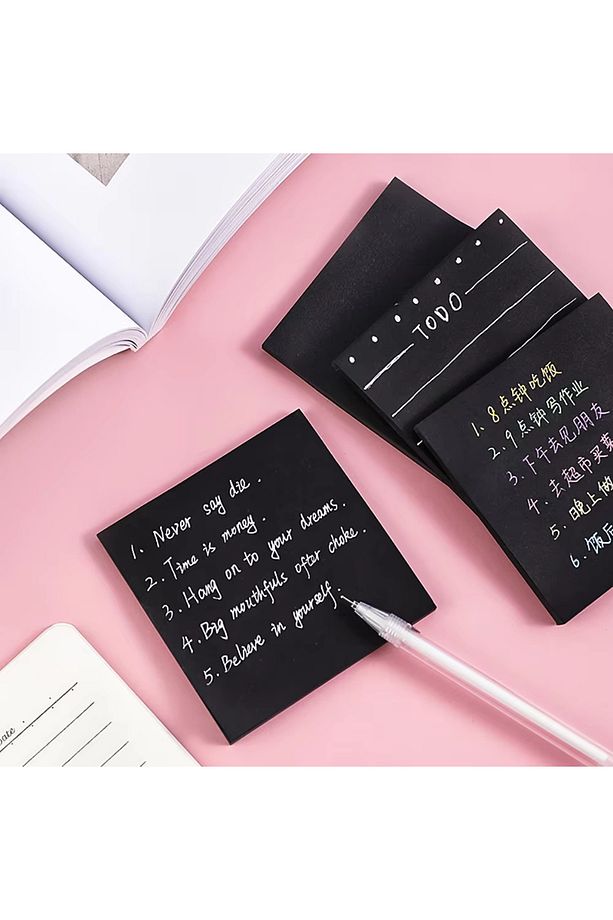 TODO
1. 8点钟吃饭
2. 9点钟写作业
3. 下午去见朋友
4. 去超市买菜
5. 晚上做
6. 饭后
1. Never say die.
2. Time is money.
3. Hang on to your dreams.
4. Big mouthfuls ofter choke.
5. Believe in yourself.
Date